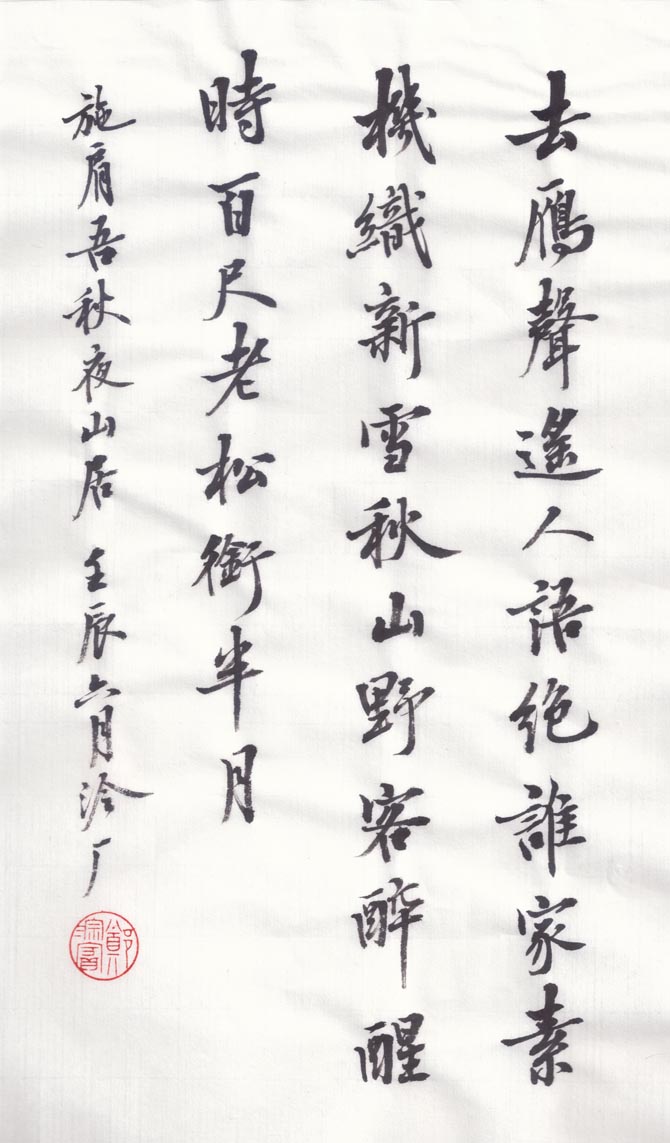 去鴈聲遙人語絶誰家素
機織新雪秋山野客醉醒
時百尺老松銜半月
施肩吾秋夜山居 壬辰六月泠厂